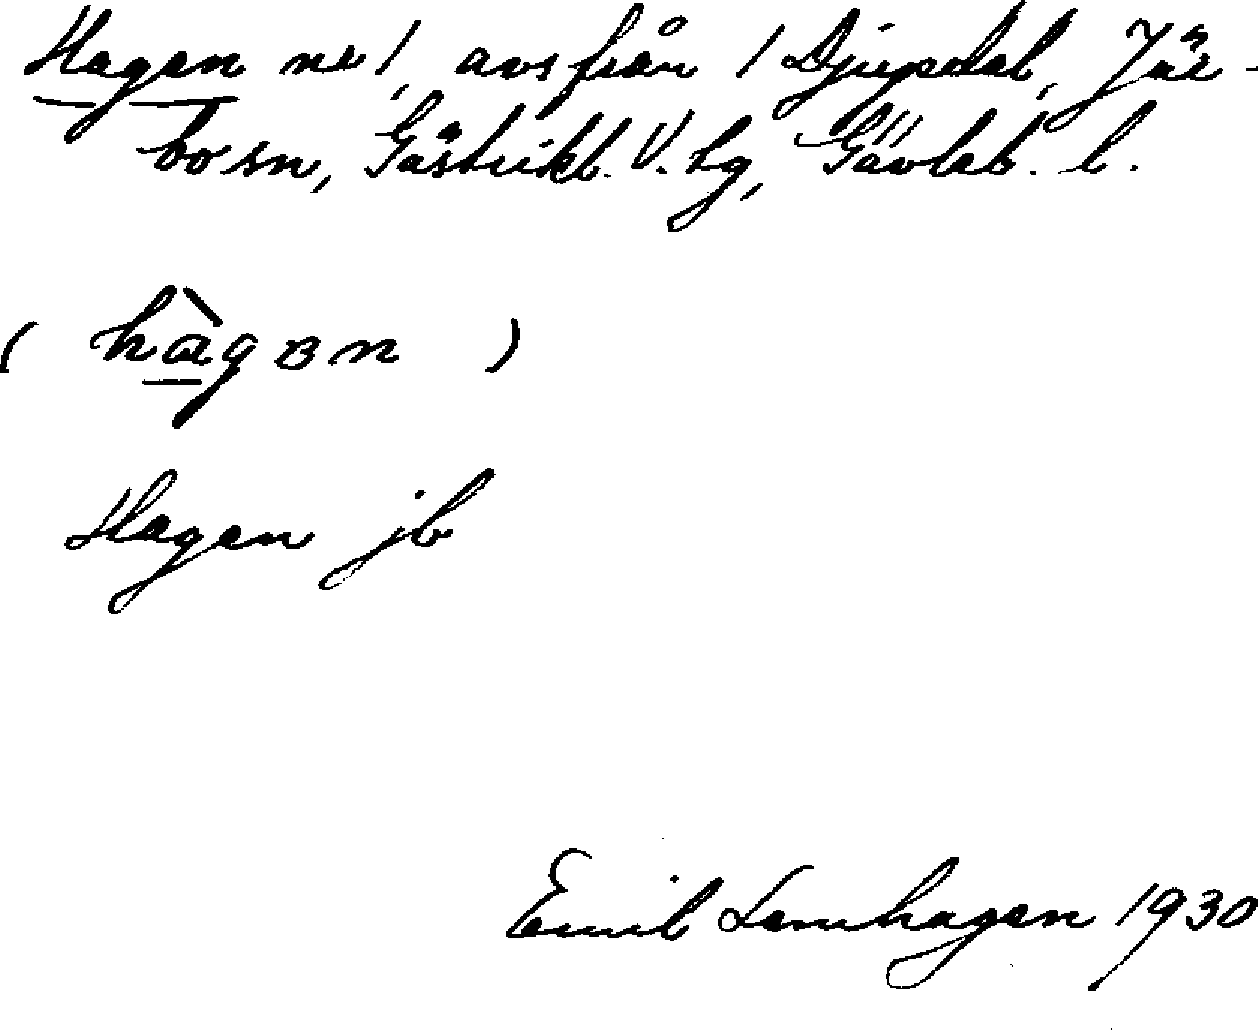 Hagen nr 1, avs från 1 Djupdal, Jär-
bo sn, Gästrikl. V. tg, Gävleb. l.
( hàgɘn )
Hagen jb
Emil Lenhagen 1930